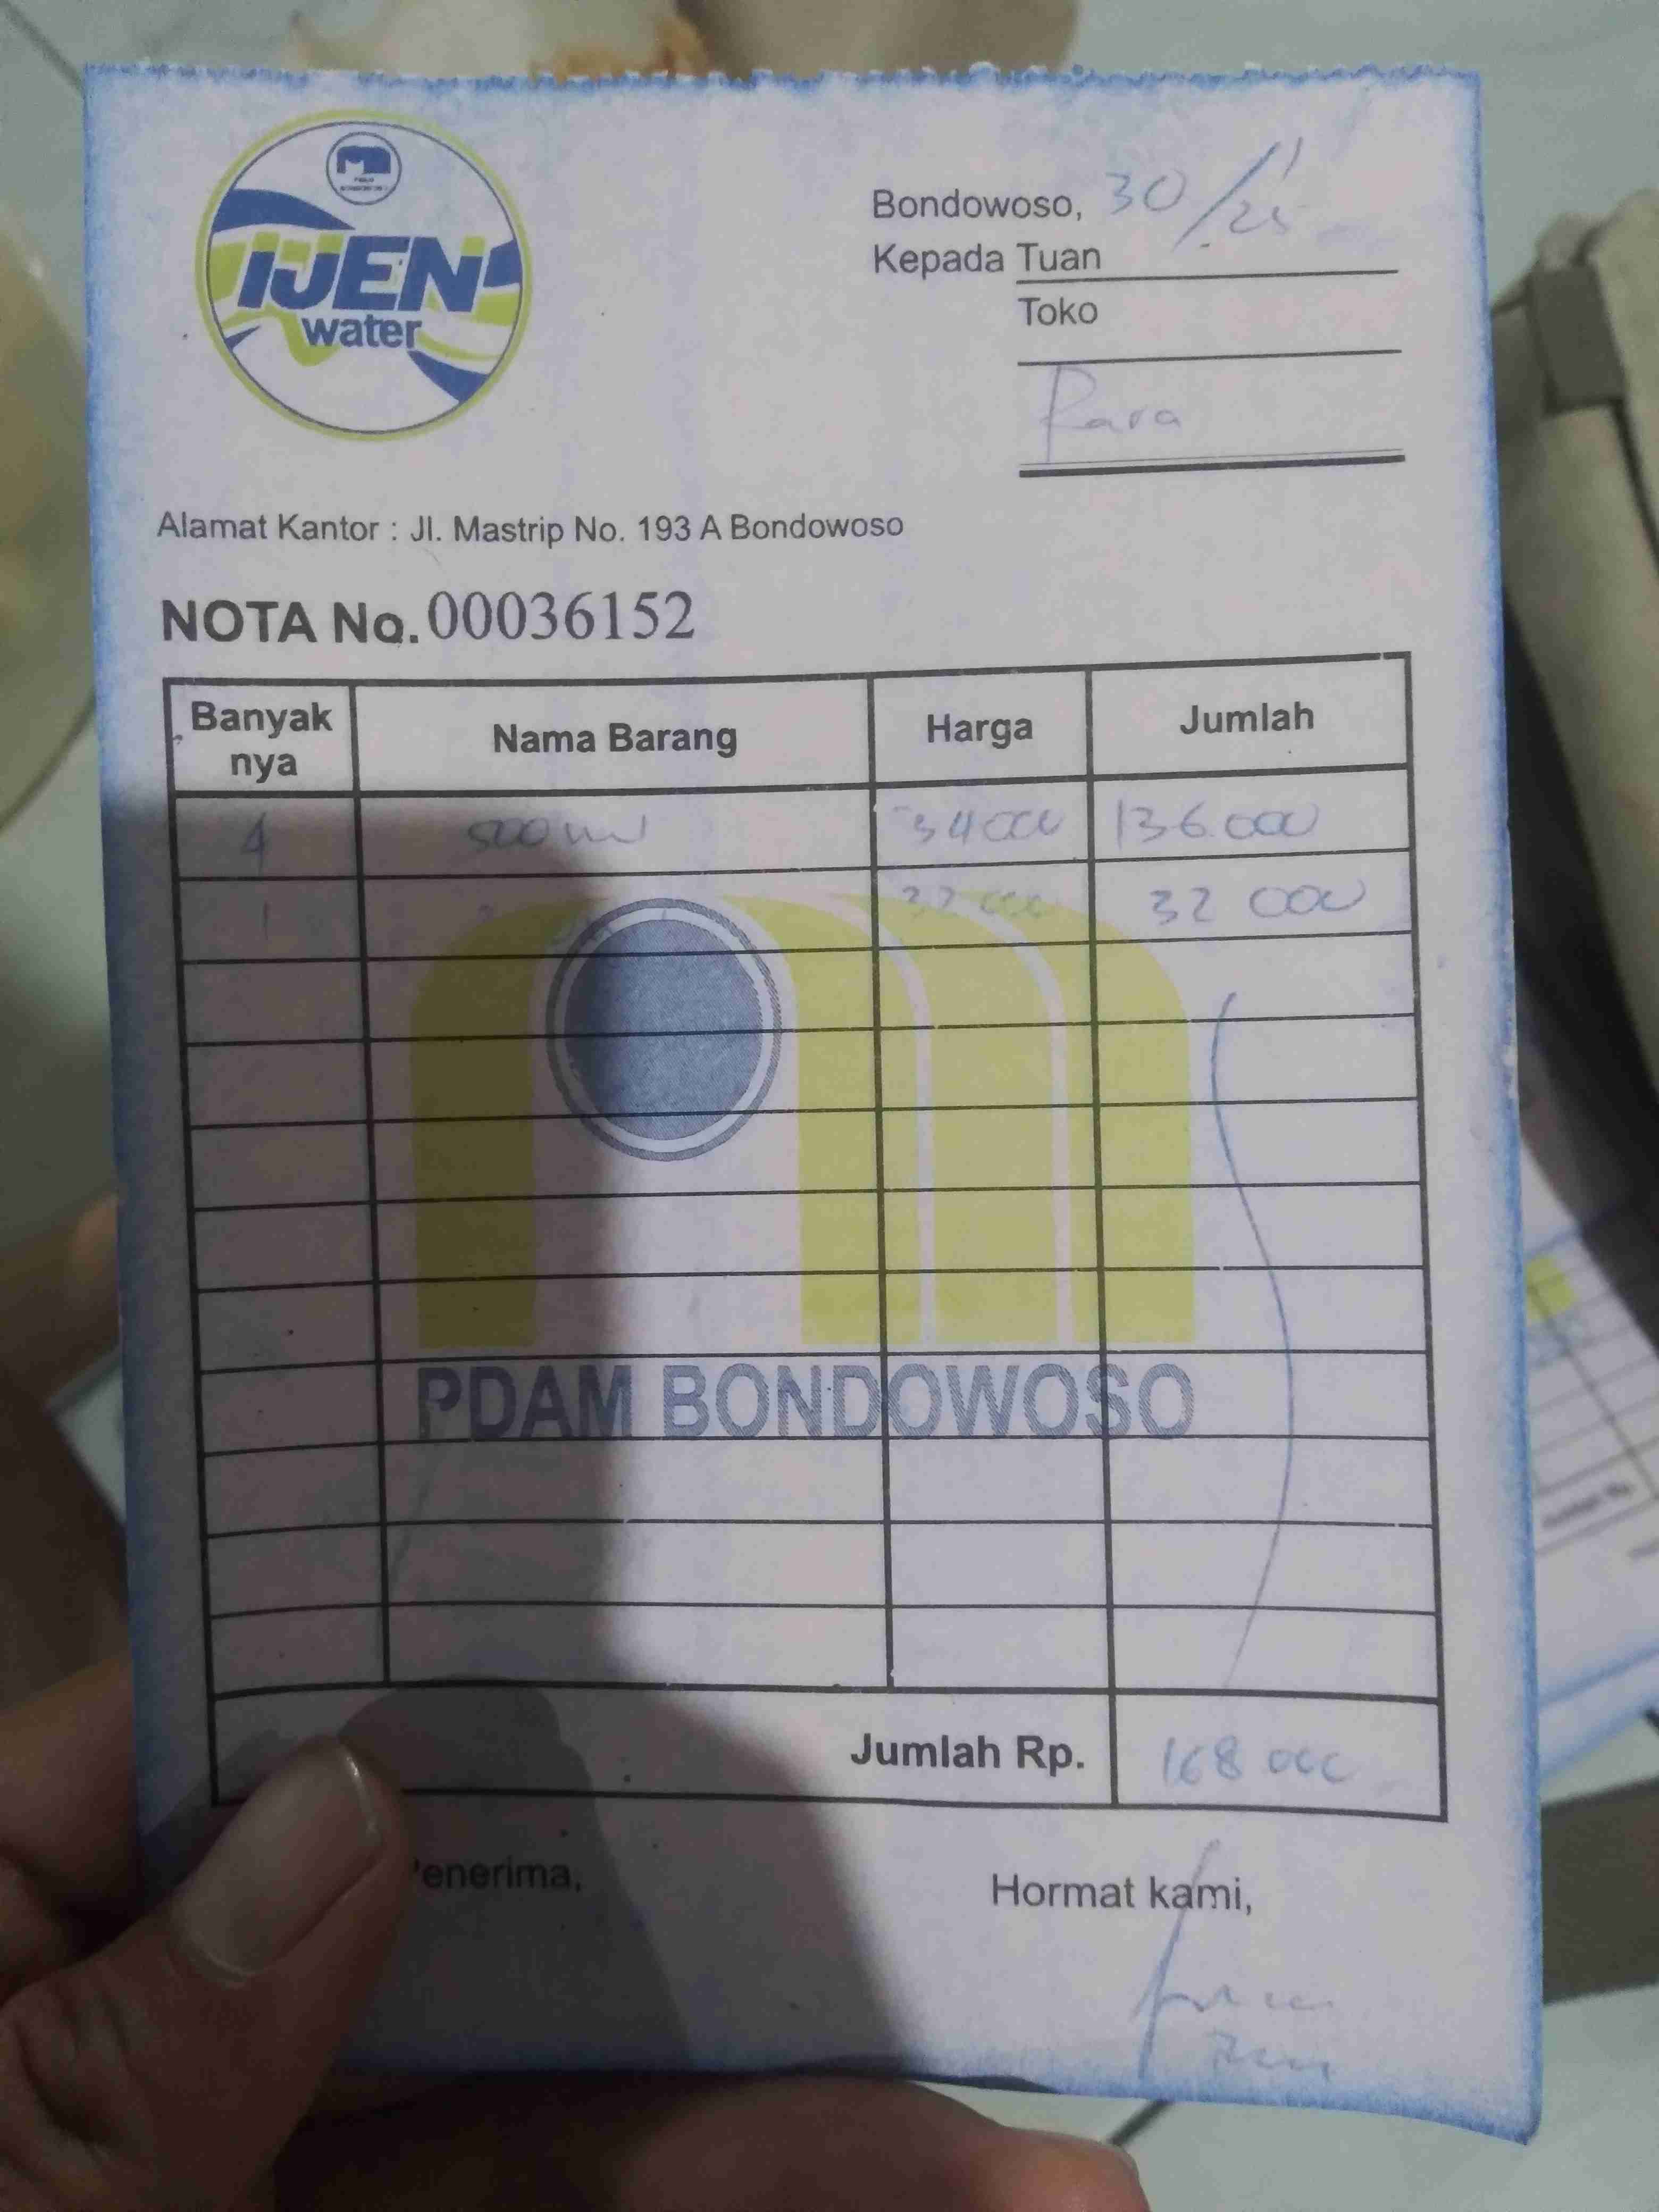 IJEN
water
Bondowoso, 30/1/25
Kepada Tuan
Toko
Rara
Alamat Kantor : Jl. Mastrip No. 193 A Bondowoso
NOTA No. 00036152
Banyak nya Nama Barang Harga Jumlah
4 500 ml 34000 136.000
1 32 000 32 000
PDAM BONDOWOSO
Jumlah Rp. 168 000
enerima, Hormat kami,